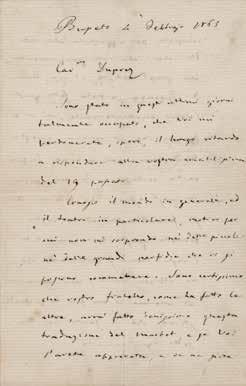 Busseto 4 Febbrajo 1865
Car.mo Duprez
Sono stato in questi ultimi giorni
talmente occupato, che Voi mi
perdonerete, spero, il lungo ritardo
a rispondere alla vostra
del 19 passato.
Conosco il mondo in generale, ed
il teatro in particolare, 
mi non mi sorprendo nè delle piccole
nè delle grandi perfidie che vi si
possono commettere. Sono certissimo
che vostro fratello, come ha fatto le
altre, avrà fatto benissimo questa
traduzione del Macbet, e se Voi
l'avete approvata, e se ne